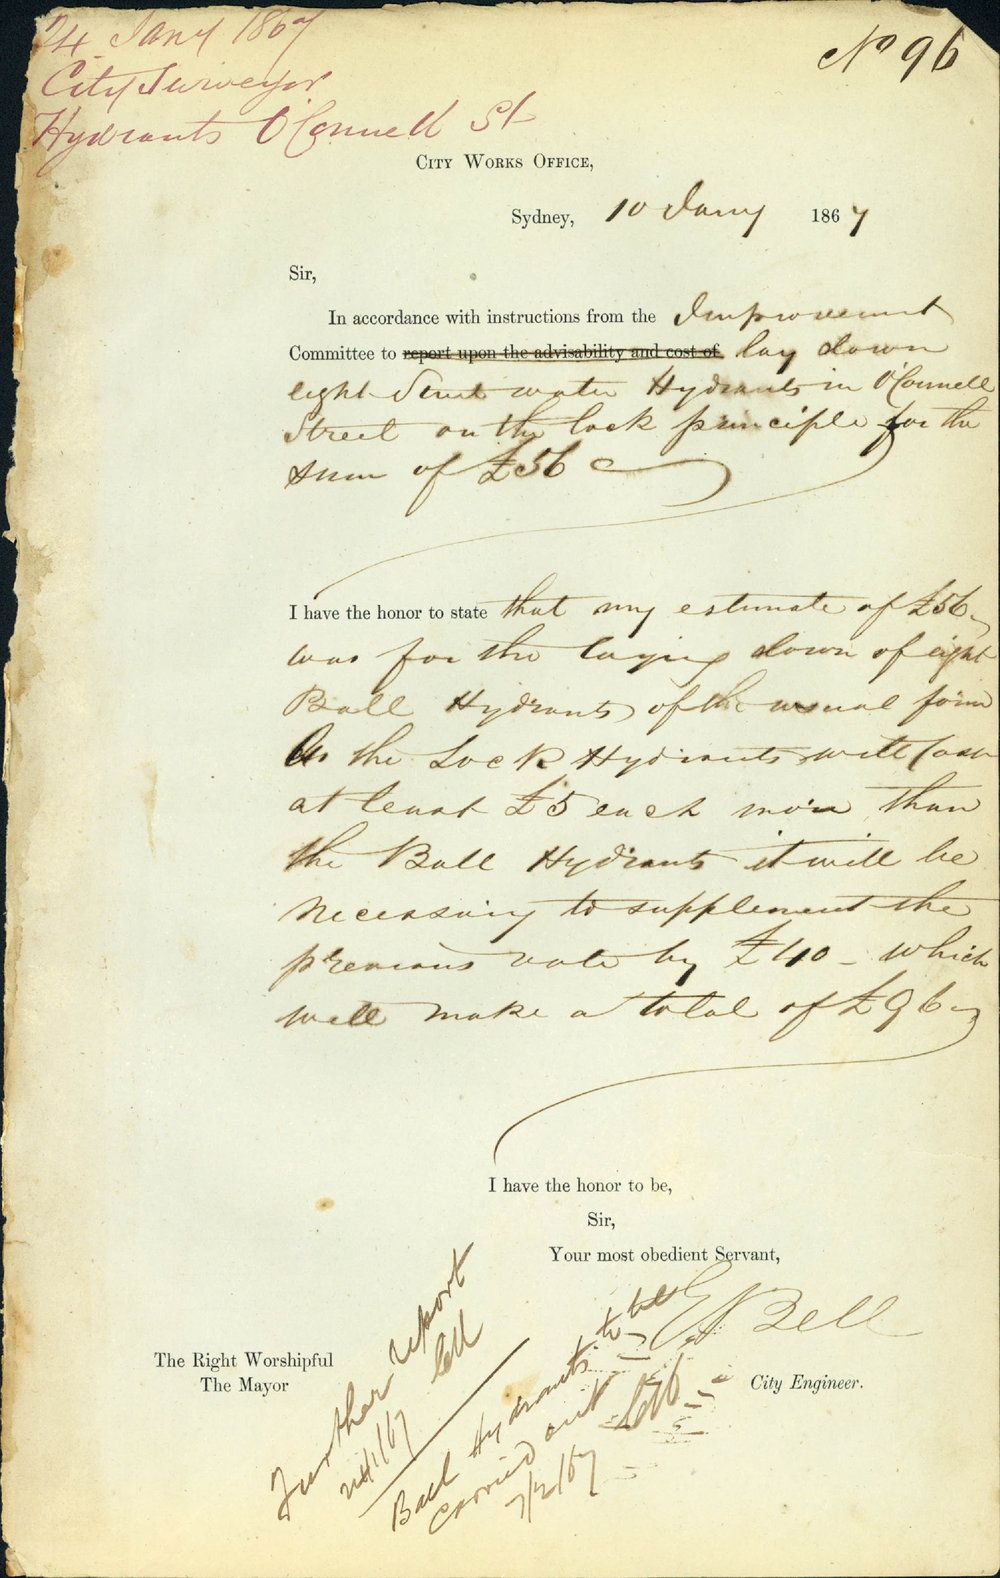 24 Jany 1867
City Surveyor
Hydrants O'Connell St
No 96
City Works Office,
Sydney, 10 Jany 1867
Sir,
In accordance with instructions from the Improvement
Committee to report upon the advisability and cost of lay down
eight Street water Hydrants in O'Connell
Street on the lock principle for the
sum of £56
I have the honor to state that my estimate of £56
was for the laying down of eight
Ball Hydrants of the usual form
As the Lock Hydrants will cost
at least £5 each more than
the Ball Hydrants it will be
necessary to supplement the
previous vote by £40 - which
will make a total of £96
I have the honor to be,
Sir,
Your most obedient Servant,
E Bell
City Engineer.
The Right Worshipful
The Mayor
Further report
24/1/67
Ball Hydrants to be
carried out £56
7/2/67